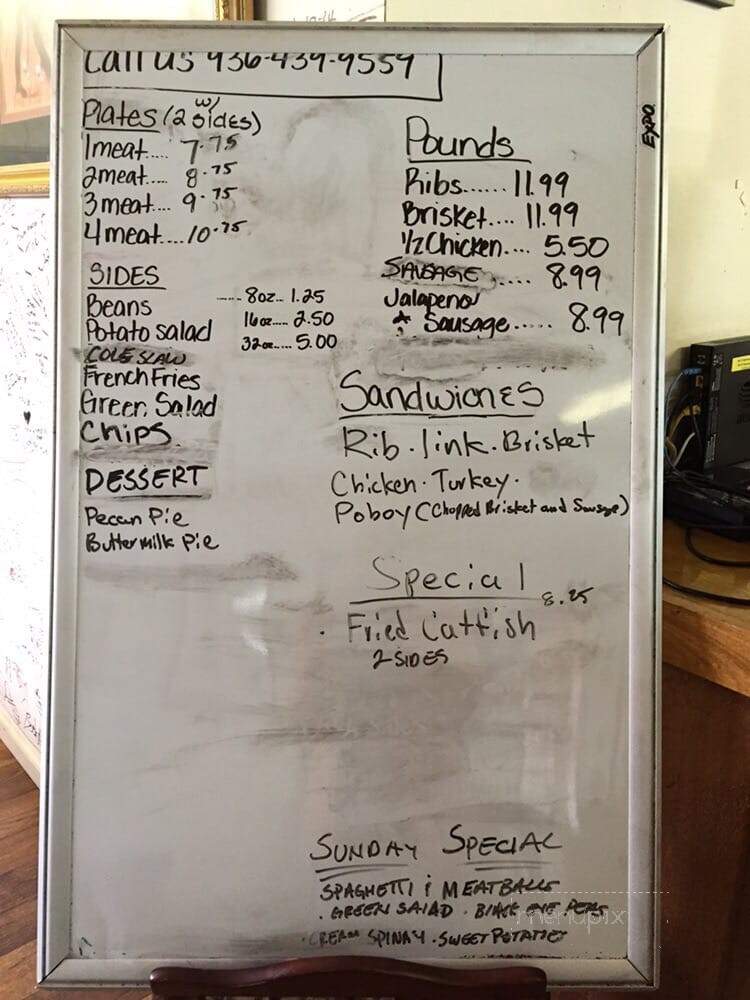 Call us 936-439-9559
Plates (2 Sides)
w/
1 meat.... 7.75
2 meat.... 8.75
3 meat.... 9.75
4 meat.... 10.75
SIDES
Beans ..... 8oz... 1.25
Potato Salad 16oz..... 2.50
COLE SLAW 32oz.... 5.00
French Fries
Green Salad
Chips
DESSERT
Pecan Pie
Buttermilk Pie
Pounds
Ribs...... 11.99
Brisket.... 11.99
1/2 Chicken.... 5.50
SAUSAGE .... 8.99
Jalapeno
* Sausage..... 8.99
Sandwiches
Rib. link. Brisket
Chicken. Turkey.
Poboy (Chopped Brisket and Sausage)
Special
8.25
. Fried Catfish
2 SIDES
SUNDAY SPECIAL
SPAGHETTI & MEATBALLS
. GREEN SALAD . BLACK EYE PEAS
. CREAM SPINAY . SWEET POTATOES
EXPO
menupix